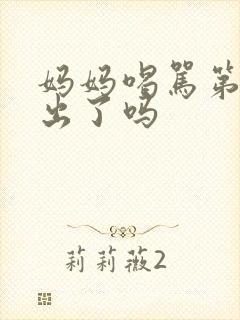 妈妈喝骂第
出了吗
莉莉薇2